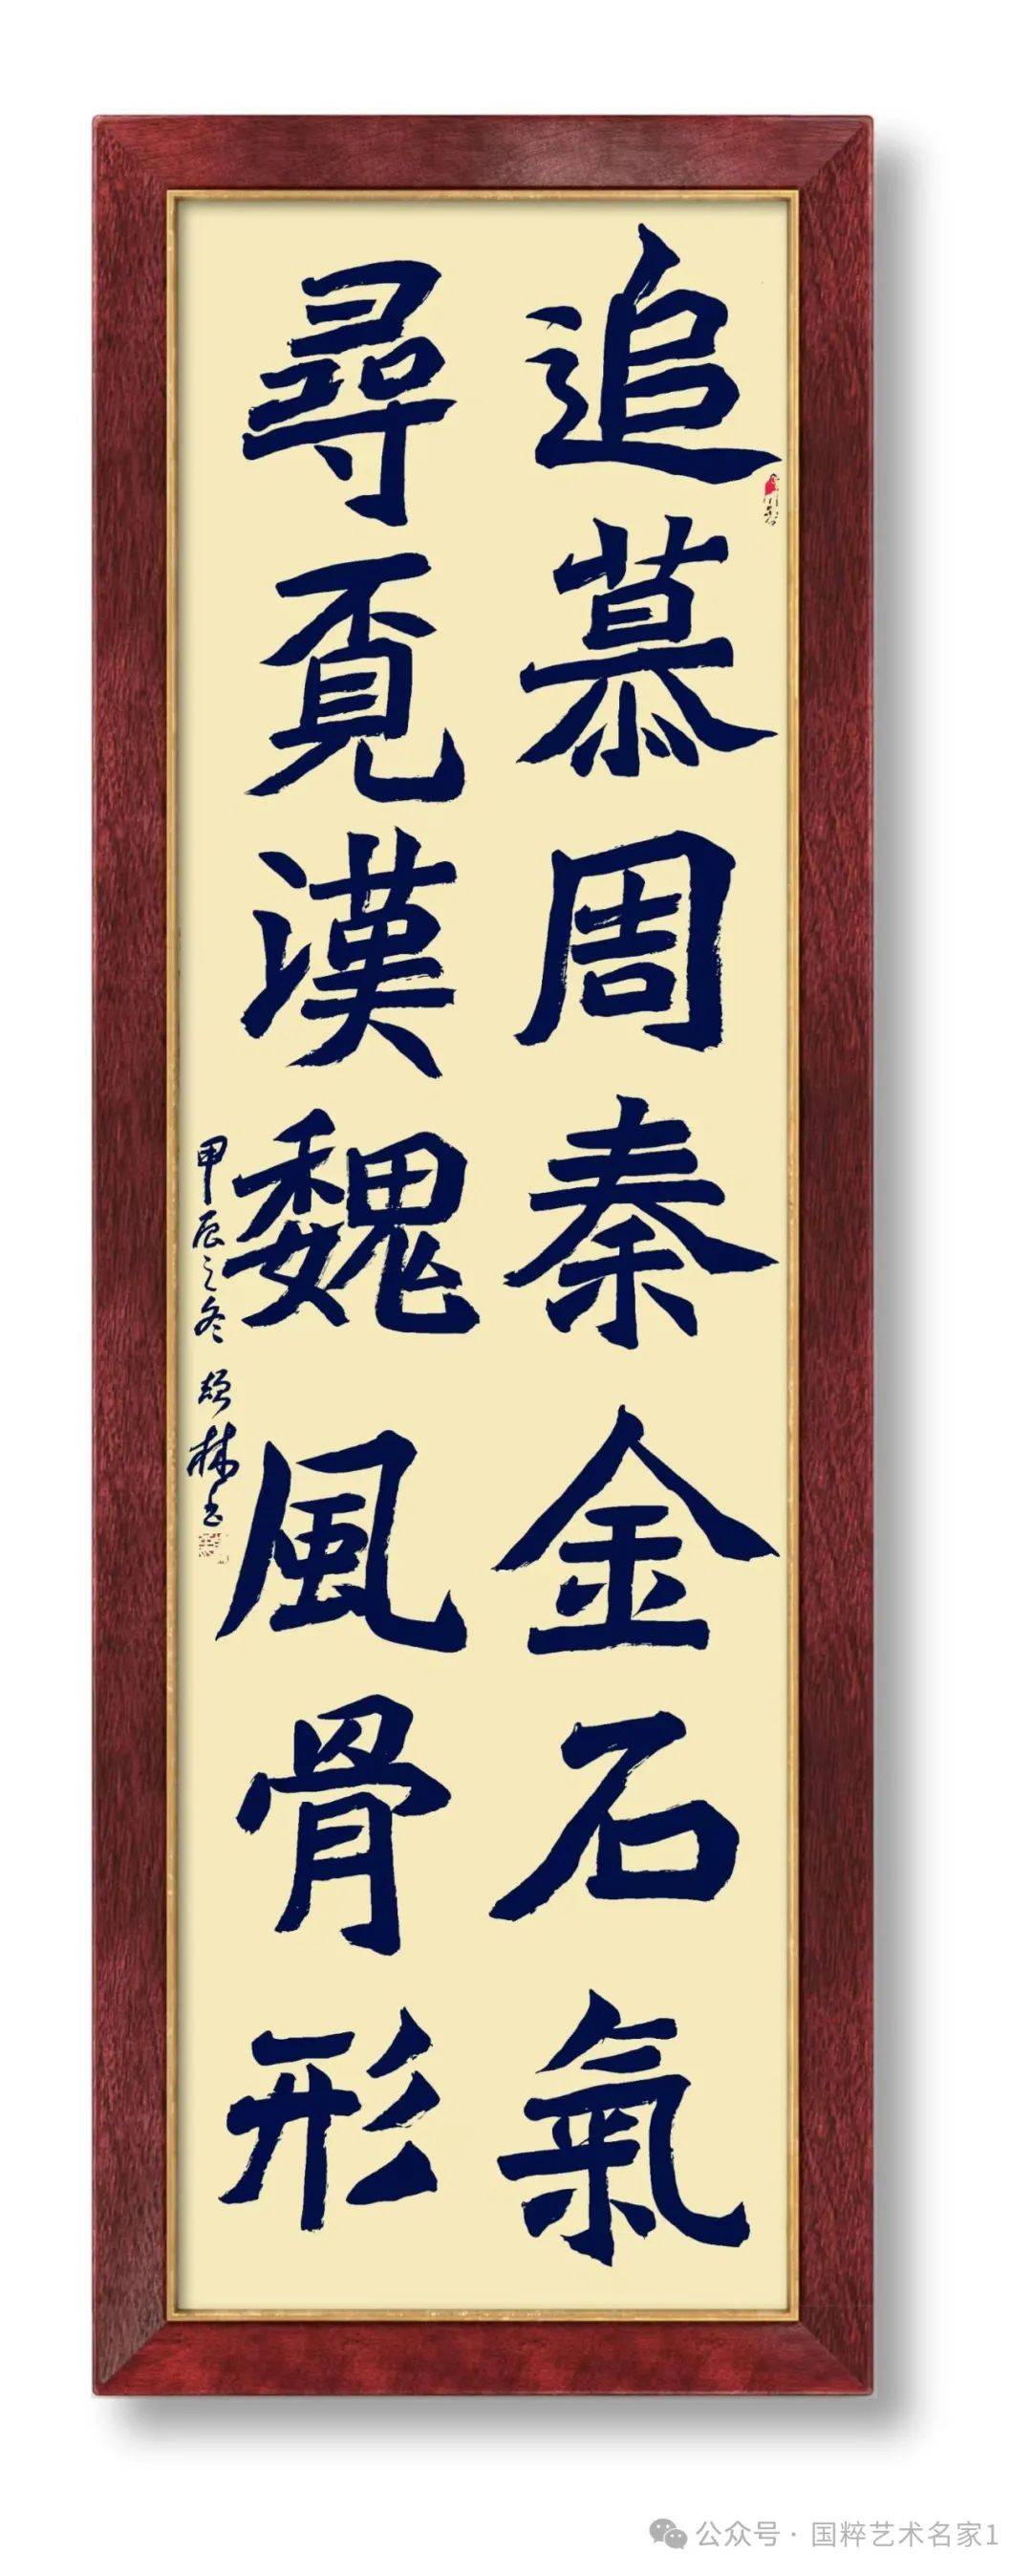 追慕周秦金石氣
尋覔漢魏風骨形
甲辰之冬
林书
公众号 · 国粹艺术名家1